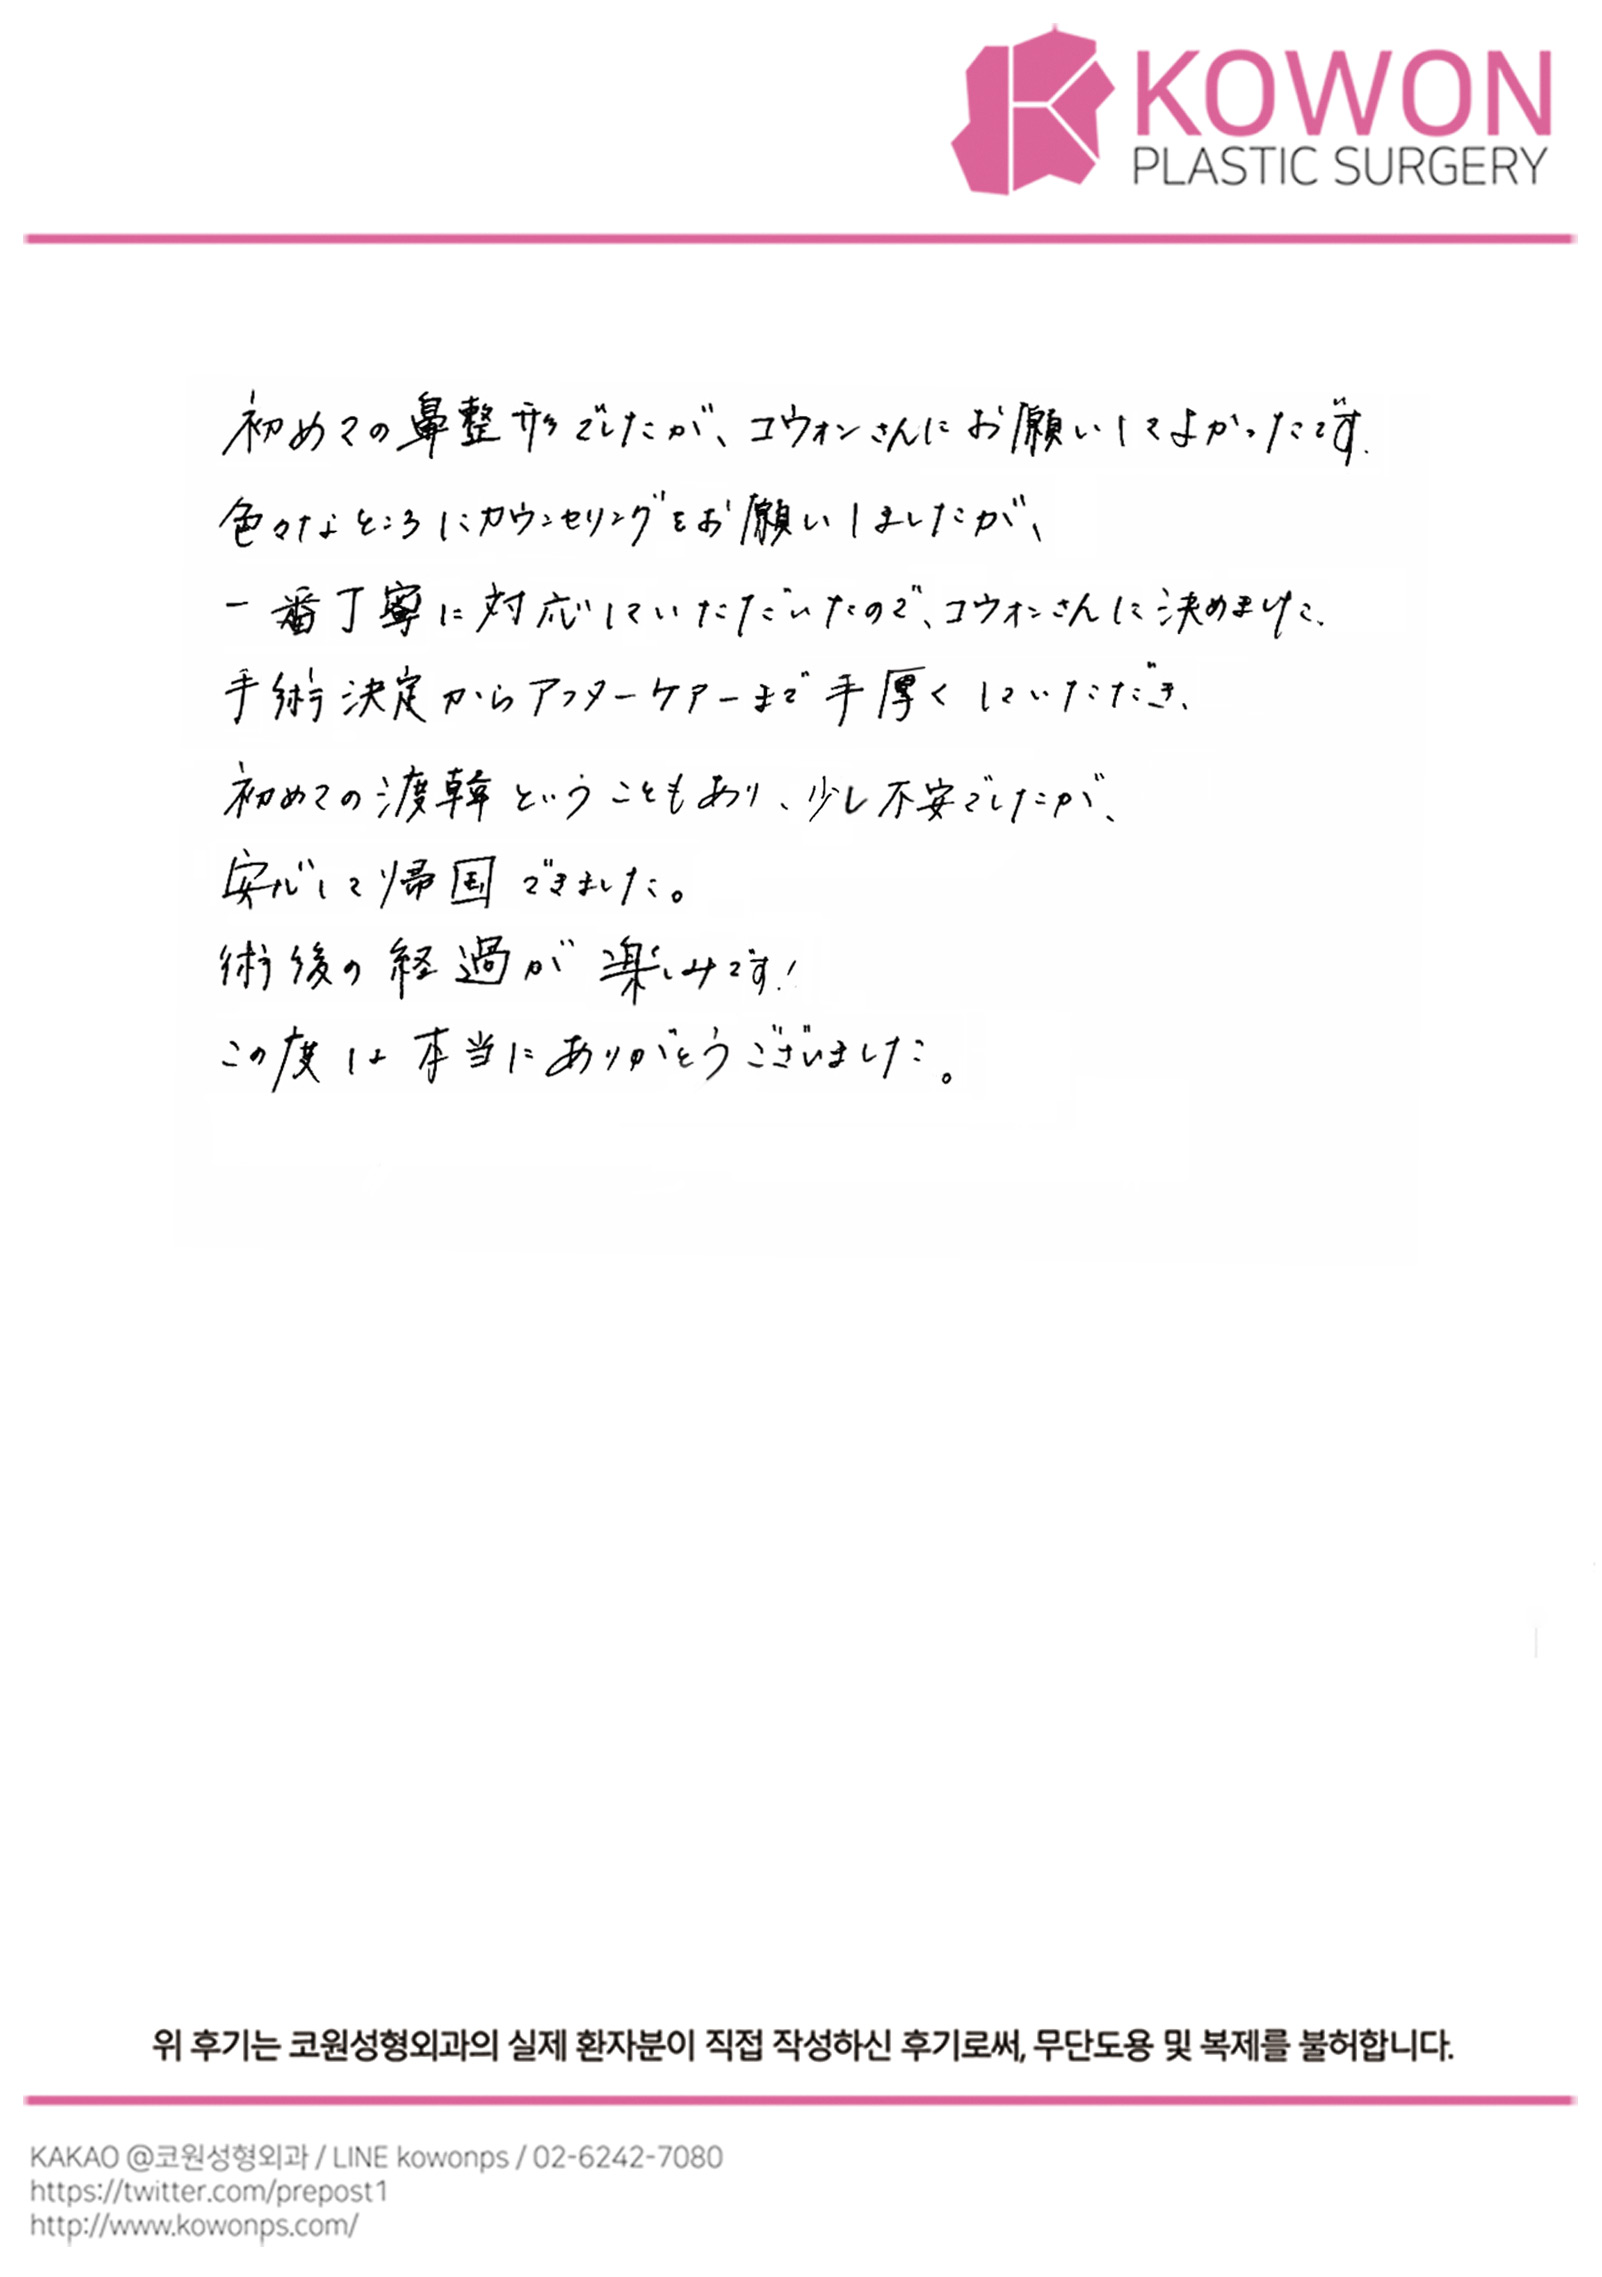 KOWON
PLASTIC SURGERY
初めての鼻整形でしたが、コウォンさんにお願いしてよかったです.
色々なところにカウンセリングをお願いしましたが、
一番丁寧に対応していただいたので、コウォンさんに決めました.
手術決定からアフターケアーまで手厚くしていただき、
初めての渡韓ということもあり、少し不安でしたが、
安心して帰国できました。
術後の経過が楽しみです!
この度は本当にありがとうございました。
위 후기는 코원성형외과의 실제 환자분이 직접 작성하신 후기로써, 무단도용 및 복제를 불허합니다.
KAKAO @코원성형외과 / LINE kowonps / 02-6242-7080
https://twitter.com/prepost1
http://www.kowonps.com/